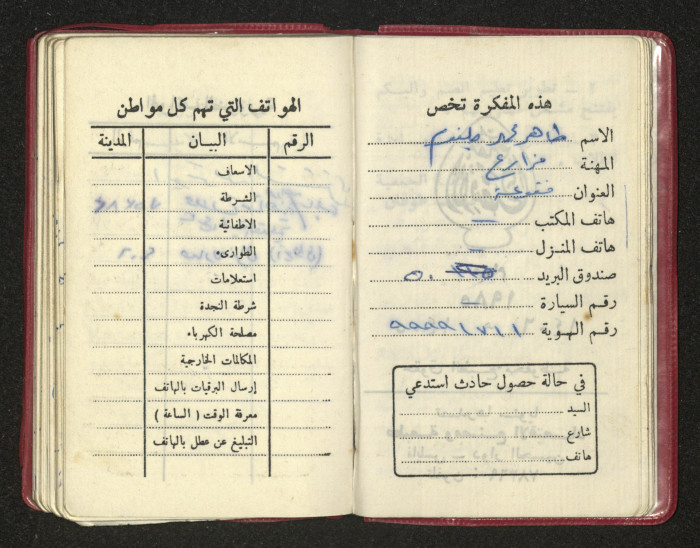 هذه المفكرة تخص
الاسم طاهر
المهنة مزارع
العنوان
هاتف المكتب —
هاتف المنزل —
صندوق البريد ٥٠
رقم السيارة —
رقم الهوية ٩٩٩٩١٧١١
في حالة حصول حادث استدعي
السيد
شارع
هاتف
الهواتف التي تهم كل مواطن
الرقم البيان المدينة
الاسعاف
الشرطة
الاطفائية
الطوارىء
استعلامات
شرطة النجدة
مصلحة الكهرباء
المكالمات الخارجية
إرسال البرقيات بالهاتف
معرفة الوقت ( الساعة )
التبليغ عن عطل بالهاتف